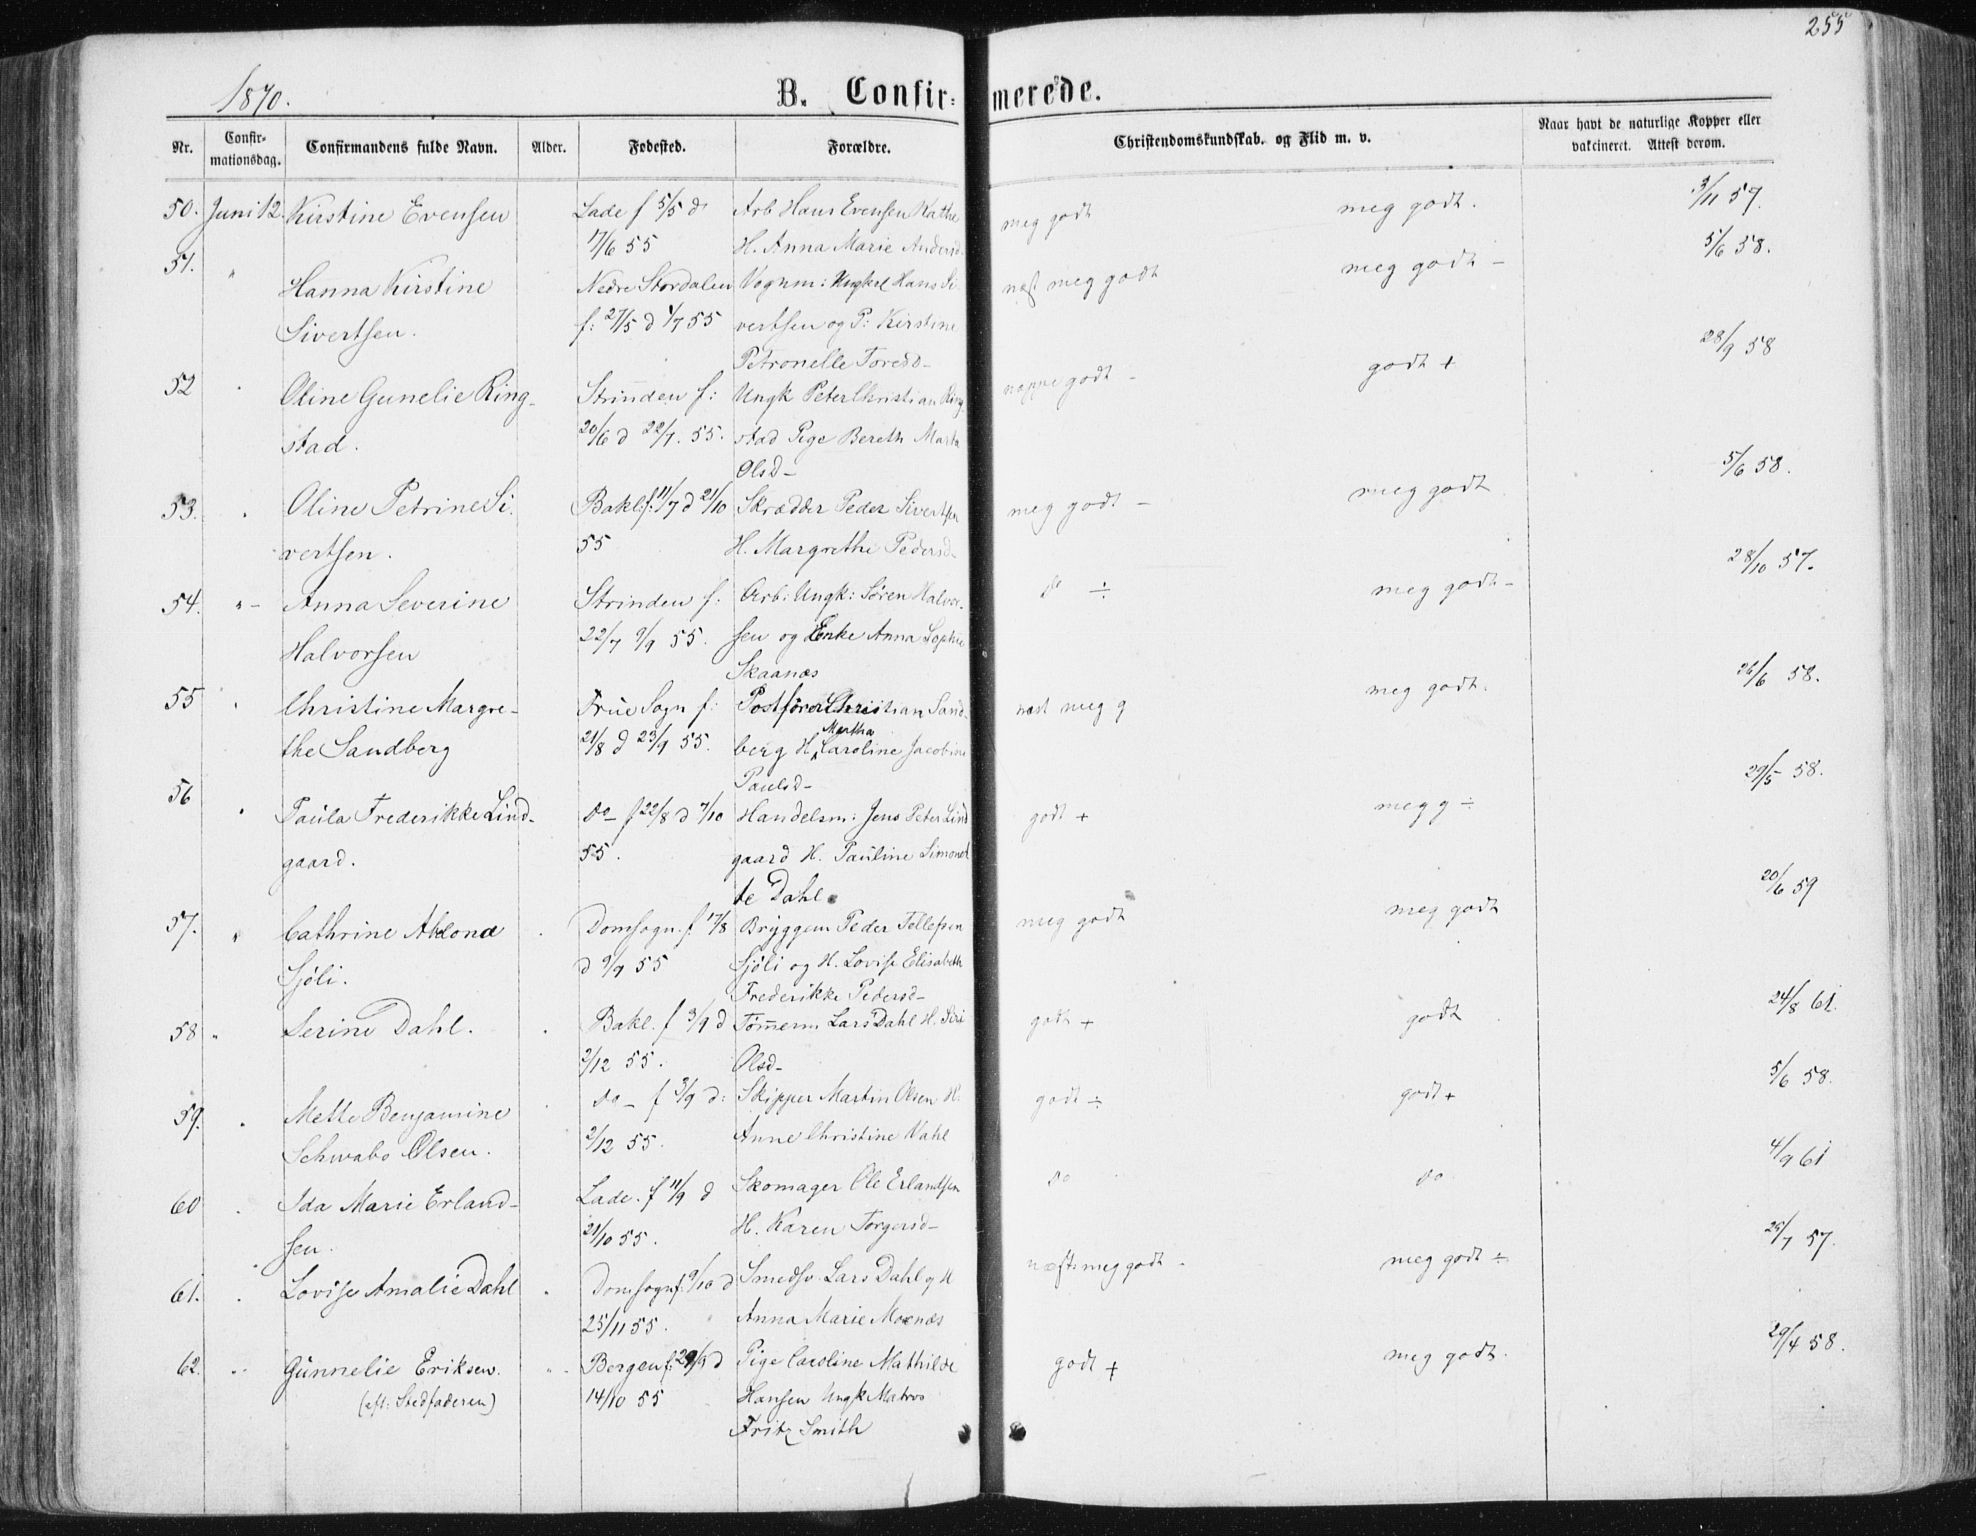 255
1870.
B. Confirmerede.
Nr. Confirmationsdag. Confirmandens fulde Navn. Alder. Fødested. Forældre. Christendomskundskab. og Flid m. v. Naar havt de naturlige Kopper eller vakcineret. Attest derom.
50. Juni 12. Kirstine Evensen Lade f 5/5 d Arb Hans Evensen meg godt meg godt. 3/11 57.
17/6 55 H. Anna Marie Andersd
51. " Hanna Kirstine Nedre Stordalen Vognm: Ungkrl Hans Si- næst meg godt meg godt - 5/6 58.
Sivertsen. f: 27/5 d 1/7 55 vertsen og P: Kirstine
Petronelle Toresd-
52 Oline Gunelie Ring- Strinden f: Ungk Peter Christian Ring- noppe godt - godt + 28/9 58
stad. 20/6 d 22/7. 55. stad Pige Bereth Marta
Olsd-
53. Oline Petrine Si- Bakl. f. 11/7 d 21/10 Skrædder Peder Sivertsen meg godt - meg godt 5/6 58.
vertsen. 55 H. Margrethe Pedersd-
54. " - Anna Severine Strinden f: Arb: Ungk: Søren Halvor- do ÷ meg godt - 28/10 57.
Halvorsen 22/7 9/9 55. sen og Enke Anna Sophie
Skaanæs
55 Christine Margre- Frue Sogn f: Postfører Christian Sand- næst meg g meg godt. 26/6 58.
the Sandberg 21/8 d 23/9 55. berg H. Martha Caroline Jacobine
Paulsd-
56 Paula Frederikke Lind- do - f 22/8 d 7/10 Handelsm: Jens Peter Lind godt + meg g ÷ 29/5 58.
gaard. 55. gaard H. Pauline Simonet
te Dahl.
57. " Cathrine Ablona Domsogn. f. 17/8 Bryggem Peder Tellefsen meg godt meg godt 20/6 59
Sjøli. d 9/9 55 Sjøli og H. Lovise Elisabeth
Frederikke Pedersd-
58 " Serine Dahl. Bakl. f 3/9 d Tømmerm Lars Dahl H. Siri godt + godt 24/8 61.
2/12 55. Olsd-
59. Mette Benjamine do - f 3/9 d: Skipper Martin Olsen H. godt ÷ godt + 5/6 58.
Schwabo Olsen. 2/12 55. Anne Christine Vahl
60 Ida Marie Erland- Lade. f 11/9 d Skomager Ole Erlandsen do do 4/9 61
sen. 21/10 55. H. Karen Torgersd-
61. Lovise Amalie Dahl Domsogn f. 9/10 d Smedsv. Lars Dahl og H næsts meg godt - meg godt ÷ 25/7 57.
25/11 55. Anna Marie Moxnæs
62. Gunnelie Eriksen. Bergen f. 29/9 d Pige Caroline Mathilde godt + meg godt. 29/4 58.
(eft: Stedfaderen) 14/10 55 Hansen Ungk Matros
Fritz Smith